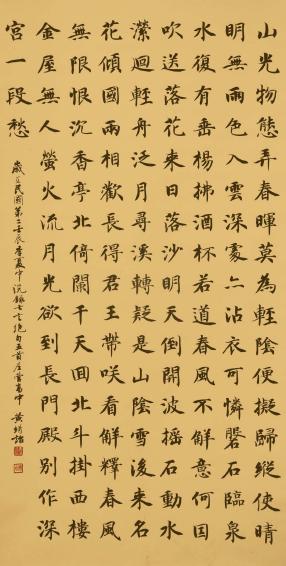 山光物態弄春暉莫為輕陰便擬歸縱使晴
明無雨色入雲深處亦沾衣可憐磐石臨泉
水復有垂楊拂酒杯若道春風不解意何因
吹送落花來日落沙明天倒開波搖石動水
瀠迴輕舟泛月尋溪轉疑是山陰雪後來名
花傾國兩相歡長得君王帶咲看解釋春風
無限恨沉香亭北倚闌干天回北斗掛西樓
金屋無人螢火流月光欲到長門殿別作深
宮一段愁
歲在民國第二壬辰季夏中浣錄七言絕句五首左營高中 黃